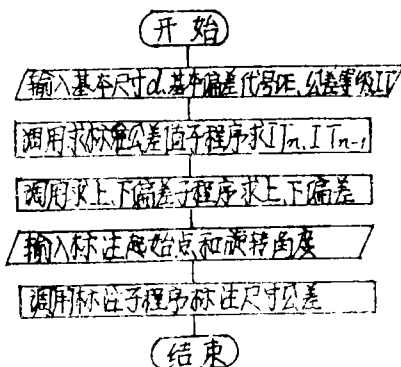 开始
输入基本尺寸d、基本偏差代号DE、公差等级IT
调用求标准公差值子程序求ITn、ITn-1
调用求上、下偏差子程序求上、下偏差
输入标注起始点和旋转角度
调用标注子程序标注尺寸公差
结束